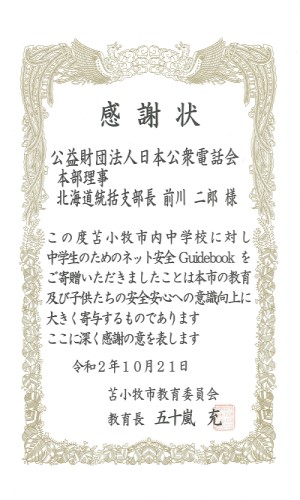 感謝状
公益財団法人日本公衆電話会
本部理事
北海道統括支部長 前川 二郎 様
この度苫小牧市内中学校に対し
中学生のためのネット安全 Guidebook を
ご寄贈いただきましたことは本市の教育
及び子供たちの安全安心への意識向上に
大きく寄与するものであります
ここに深く感謝の意を表します
令和2年10月21日
苫小牧市教育委員会
教育長 五十嵐 充